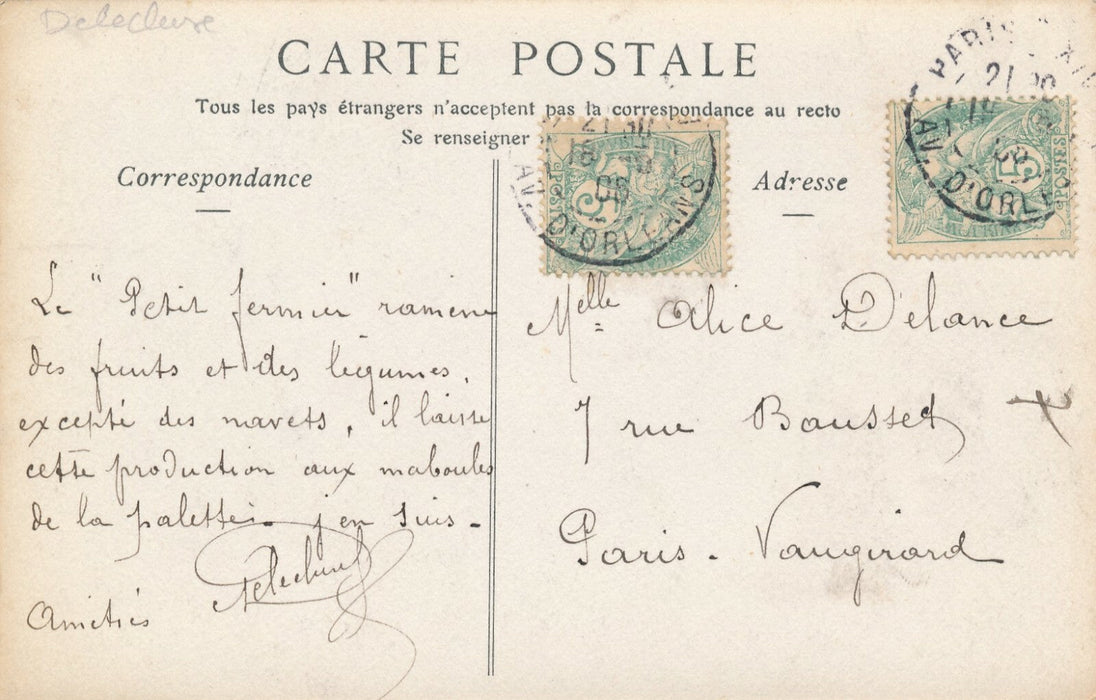 Delecluse
CARTE POSTALE
Tous les pays étrangers n'acceptent pas la correspondance au recto
Se renseigner
Correspondance
Adresse
PARIS
21
AV. D'ORLEANS
08
5
POSTES
AV. D'ORLEANS
POSTES
Le "Petit fermier" ramène
des fruits et des légumes,
excepté des navets, il laisse
cette production aux maboules
de la palette. j'en suis.
Delecluse
Amitiés
Melle Alice Délance
7 rue Bausset
Paris. Vaugirard